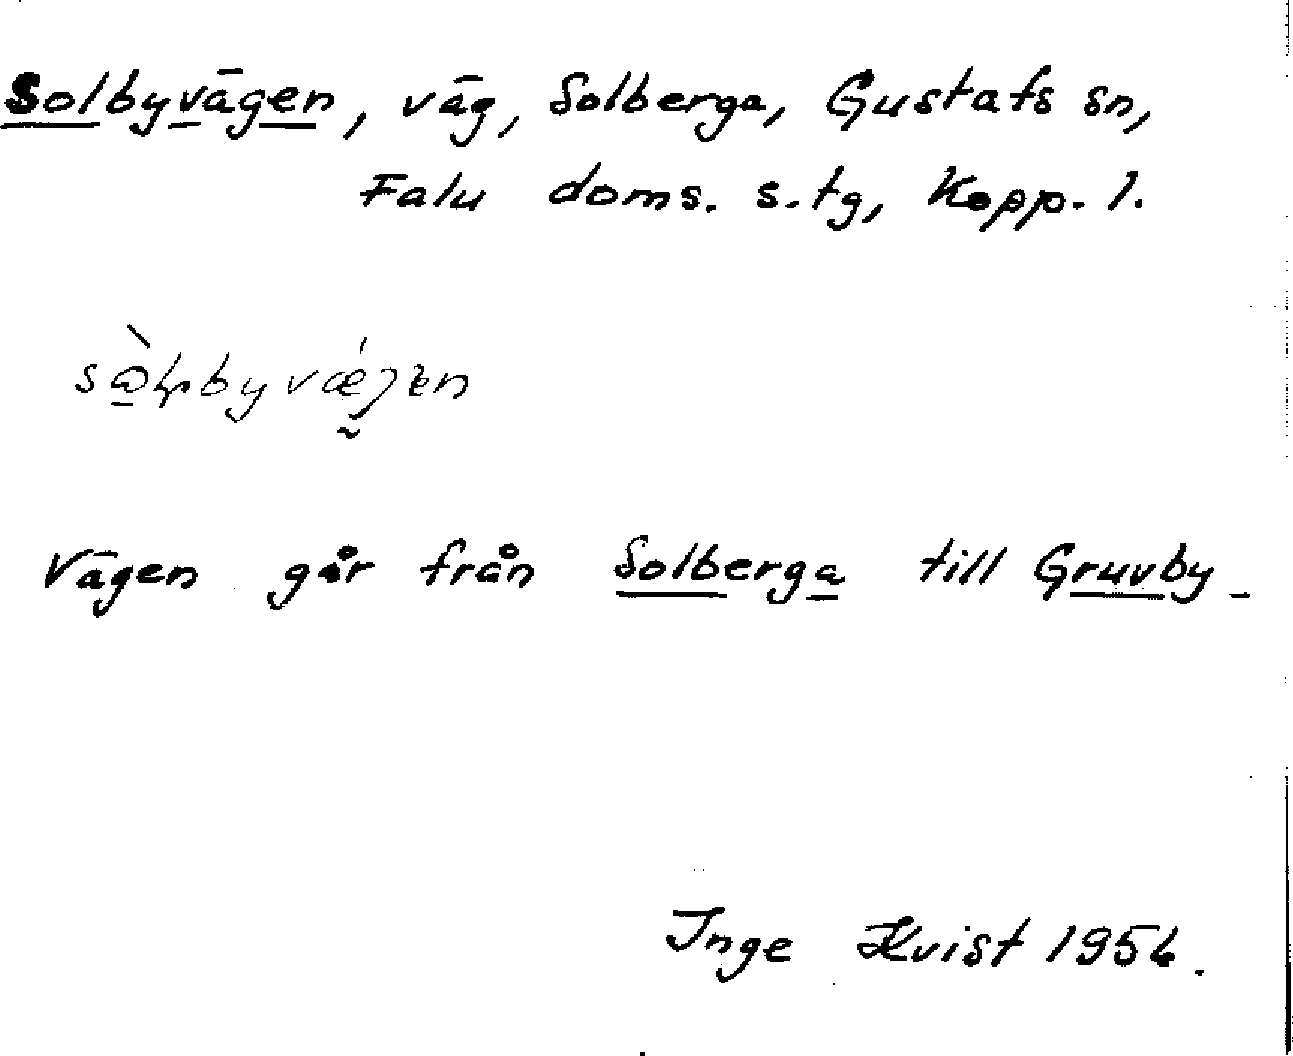 Solbyvägen, väg, Solberga, Gustafs sn,
Falu doms. s. tg, Kopp. l.
Vägen går från Solberga till Gruvby.
Inge Kvist 1956.